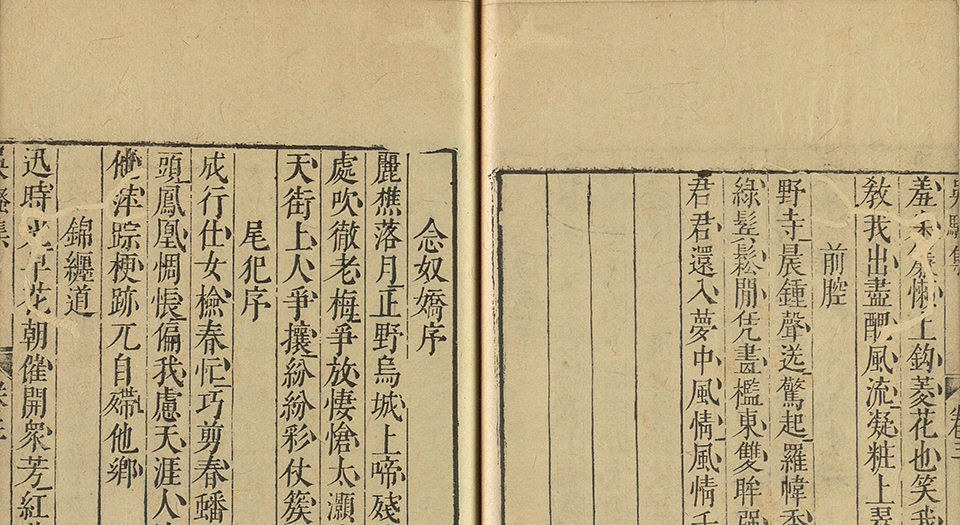 吳騷集 卷三
羞 懶上鈎菱花也笑我
教我出盡醜風流凝粧上翠
前腔
野寺晨鍾聲送驚起羅幃香
綠髩鬆閒凭畫檻東雙眸
君君還入夢中風情風情千
念奴嬌序
麗樵落月正野烏城上啼殘
處吹徹老梅爭放悽愴太灝
天街上人爭攘紛紛彩仗簇
尾犯序
成行仕女檢春忙巧剪春蟠
頭鳳凰惆悵偏我慮天涯人
萍踪梗跡兀自殢他鄉
錦纏道
迅時光早花朝催開衆芳紅
吳騷集 卷三